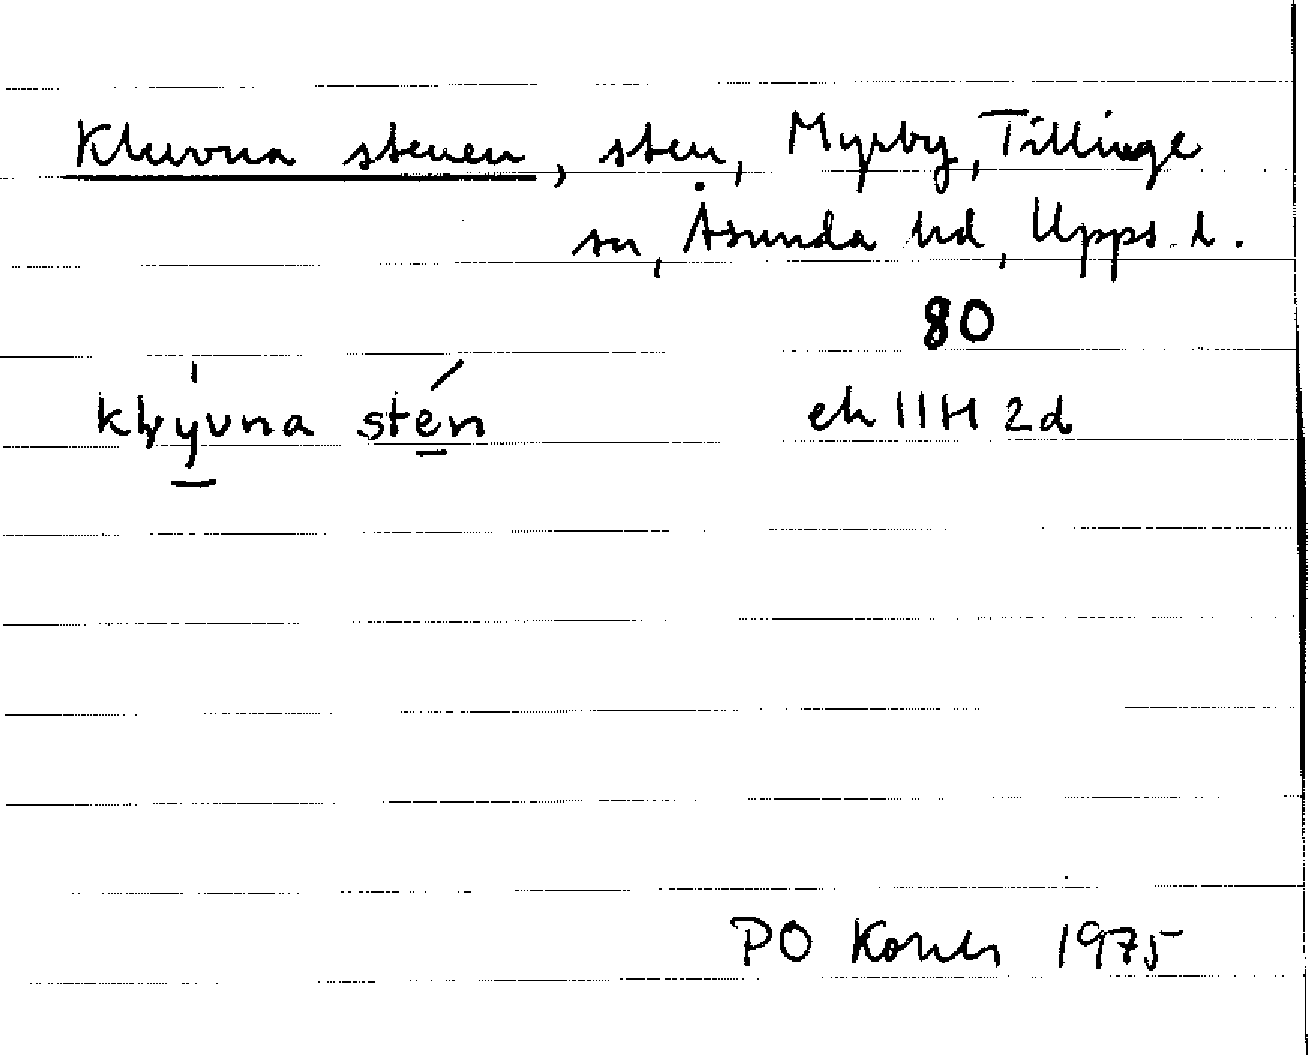 Kluvna stenen, sten, Myrby, Tillinge
sn, Åsunda hd, Upps. l.
80
klyvna stén
ek 11H 2d
PO 1975